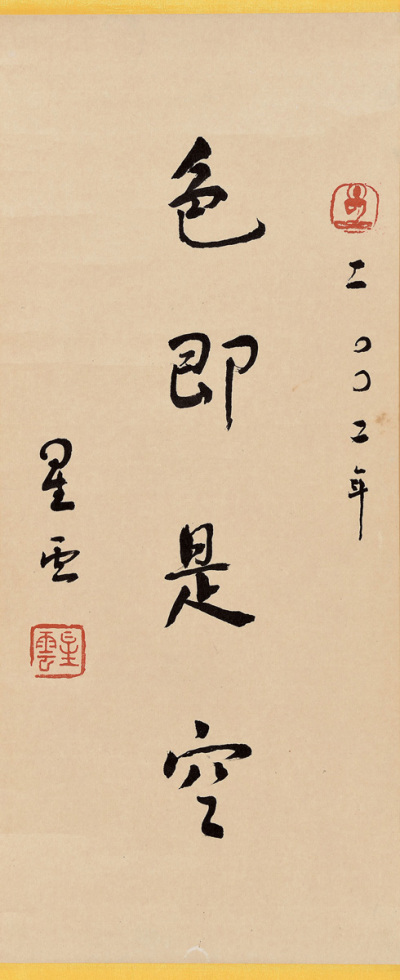 二〇〇二年
色即是空
星雲
星雲